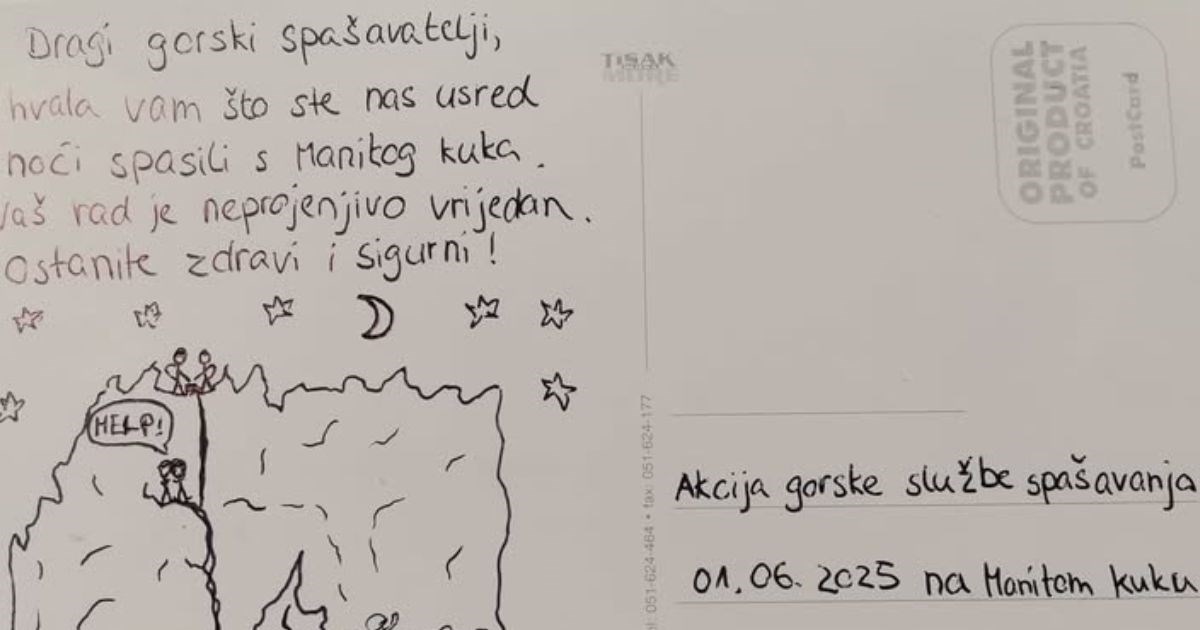 Dragi gorski spašavatelji,
hvala vam što ste nas usred
noći spasili s Manitog kuka.
Vaš rad je neprojenjivo vrijedan.
Ostanite zdravi i sigurni!
HELP!
TISAK
MORE
051-624-464 • fax: 051-624-177
ORIGINAL
PRODUCT
OF CROATIA
PostCard
Akcija gorske službe spašavanja
01.06.2025 na Manitom kuku